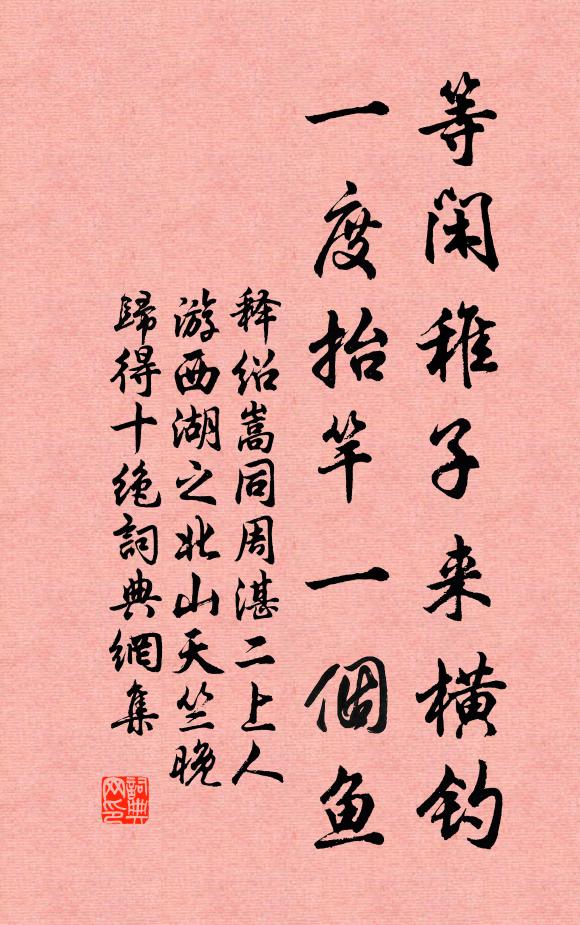 等闲稚子来横钓
一度抬竿一個鱼
释绍嵩同周湛二上人
游西湖之北山天竺晚
歸得十绝詞典網集
詞典
网印